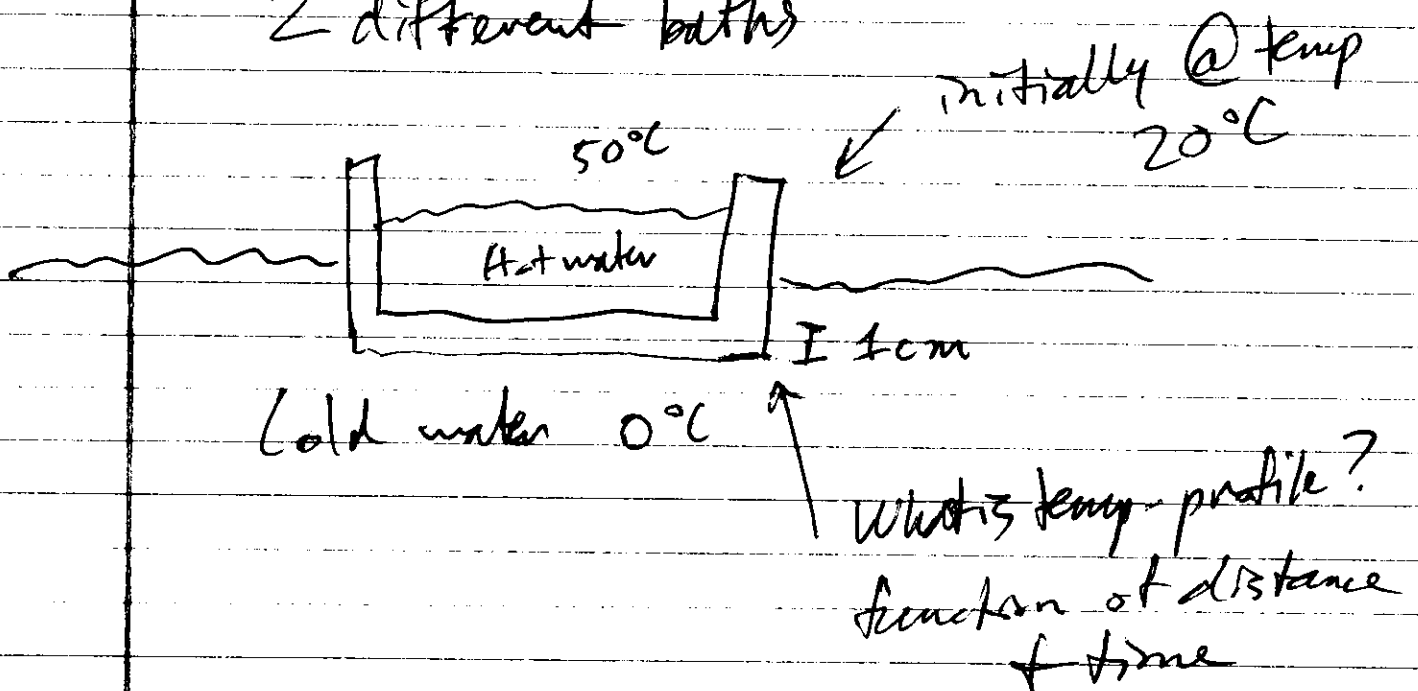 2 different baths
initially @ temp
20°C
50°C
Hot water
I 1cm
Cold water 0°C
What is temp. profile?
function of distance
+ time